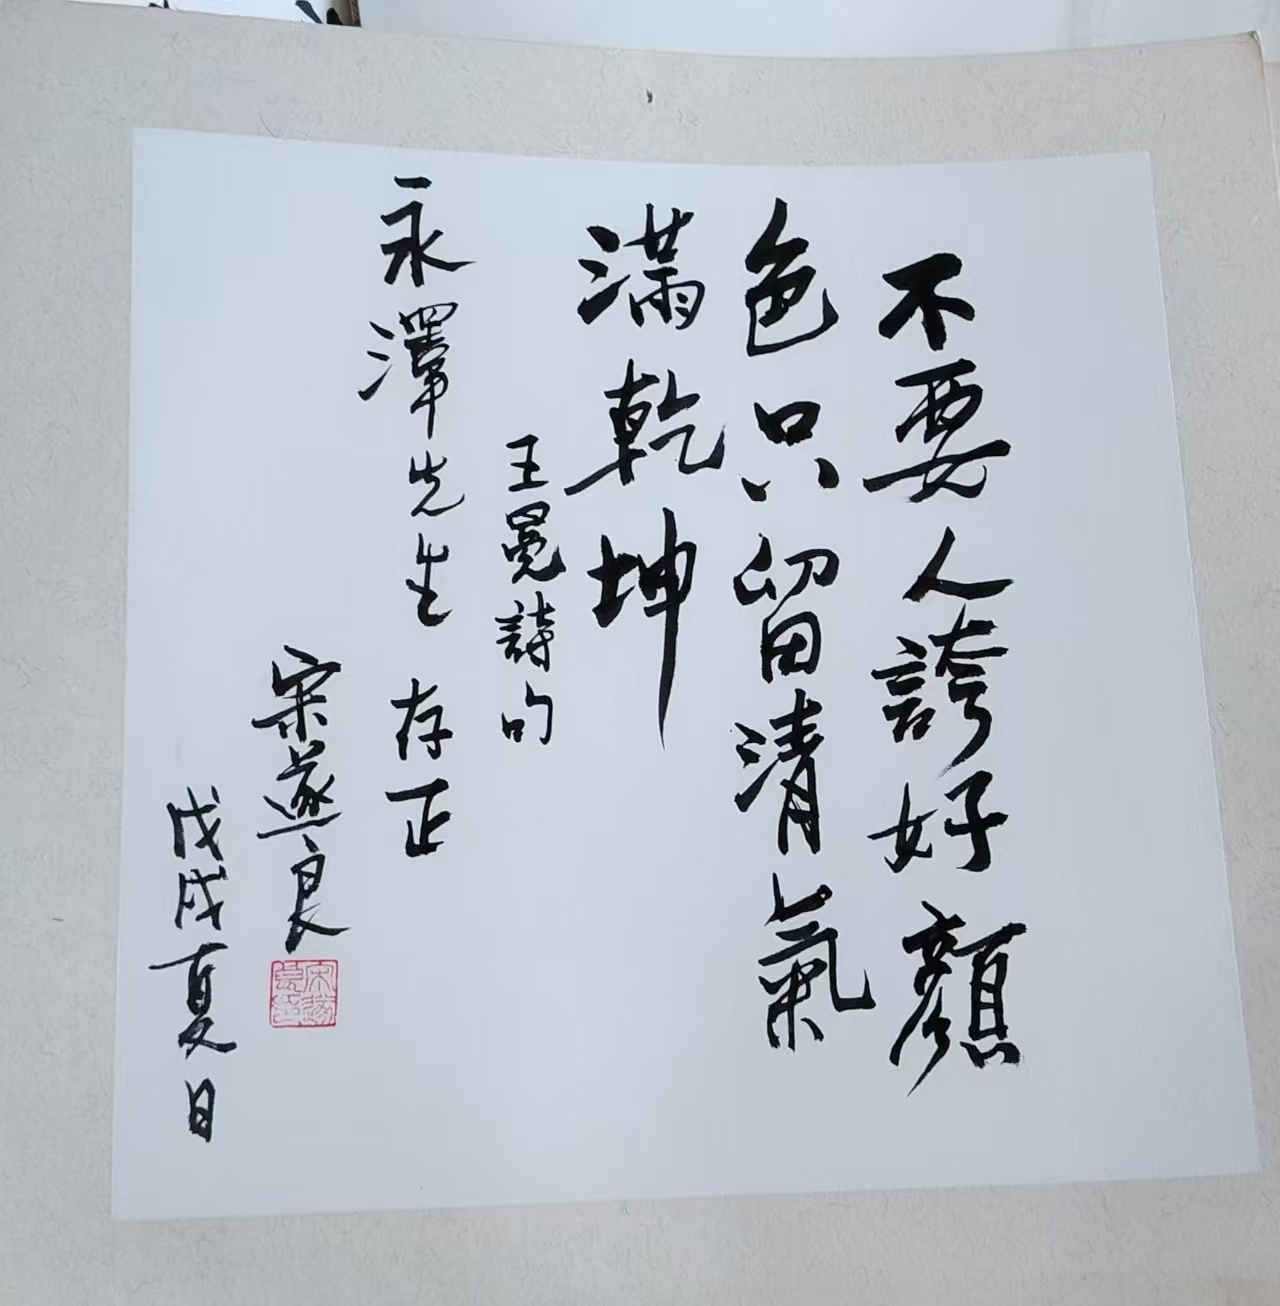 不要人誇好顏
色只留清氣
滿乾坤
王冕詩句
永澤先生 存正
宋遂良
戊戌夏日